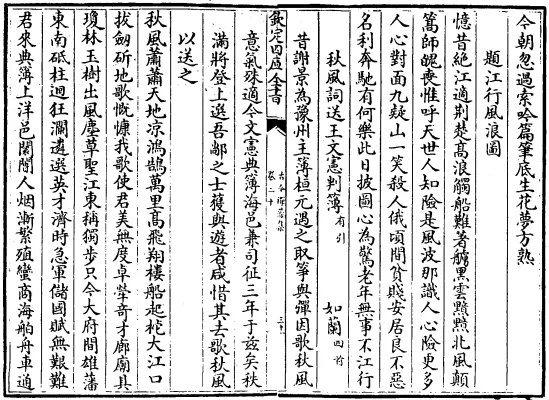 今朝忽過索吟篇筆底生花夢方熟
題江行風浪圖
憶昔絶江適荆楚髙浪觸船難著艣黒雲黯黯北風顛
篙師魄喪惟呼天世人知險是風波那識人心險更多
人心對面九疑山一笑殺人俄頃間貧賤安居良不惡
名利奔馳有何樂此日披圖心為驚老年無事不江行
秋風詞送王文憲判簿有引 如蘭四首
昔謝景為豫州主簿桓元遇之取箏與彈因歌秋風
欽定四庫全書
卷二十
三十
意氣殊適今文憲典簿海邑兼司征三年于兹矣秩
滿將登上選吾鄙之士獲與遊者咸惜其去歌秋風
以送之
秋風蕭蕭天地凉鴻鵠萬里髙飛翔樓船起柁大江口
拔劔斫地歌慨慷我歌使君美無度卓犖竒才廊廟具
瓊林玉樹出風塵草聖江東稱獨步只今大府間雄藩
東南砥柱廻狂瀾遴選英才濟時急軍儲國賦無艱難
君来典簿上洋邑闤闠人烟漸繁殖蠻商海舶舟車通